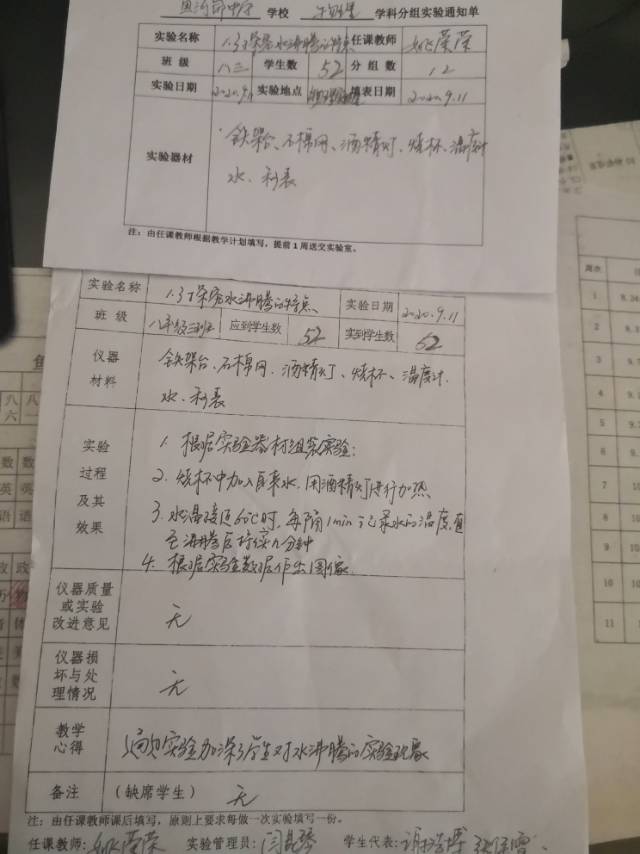 学校 学科分组实验通知单
实验名称 1.3探究水沸腾的特点 任课教师 姚荣荣
班 级 八三 学生数 52 分组数 12
实验日期 2020.9.11 实验地点 填表日期 2020.9.11
实验器材 铁架台、石棉网、酒精灯、烧杯、温度计
水、秒表
注:由任课教师根据教学计划填写,提前1周送交实验室。
实验名称 1.3探究水沸腾的特点 实验日期 2020.9.11
班 级 八年级三班 应到学生数 52 实到学生数 52
仪器材料 铁架台、石棉网、酒精灯、烧杯、温度计、
水、秒表
实验过程及其效果 1. 根据实验器材组装实验;
2. 烧杯中加入自来水,用酒精灯进行加热
3. 水温接近 时,每隔1min记录水的温度,直
至沸腾后持续几分钟
4. 根据实验数据作出图像
仪器质量或实验改进意见 无
仪器损坏与处理情况 无
教学心得 通过实验加深了学生对水沸腾的实验现象
备注 (缺席学生) 无
注:由任课教师课后填写,原则上要求每做一次实验填写一份。
任课教师:姚荣荣 实验管理员: 学生代表:
周次
1
2
3
4
5
6
7
8
9
10
11